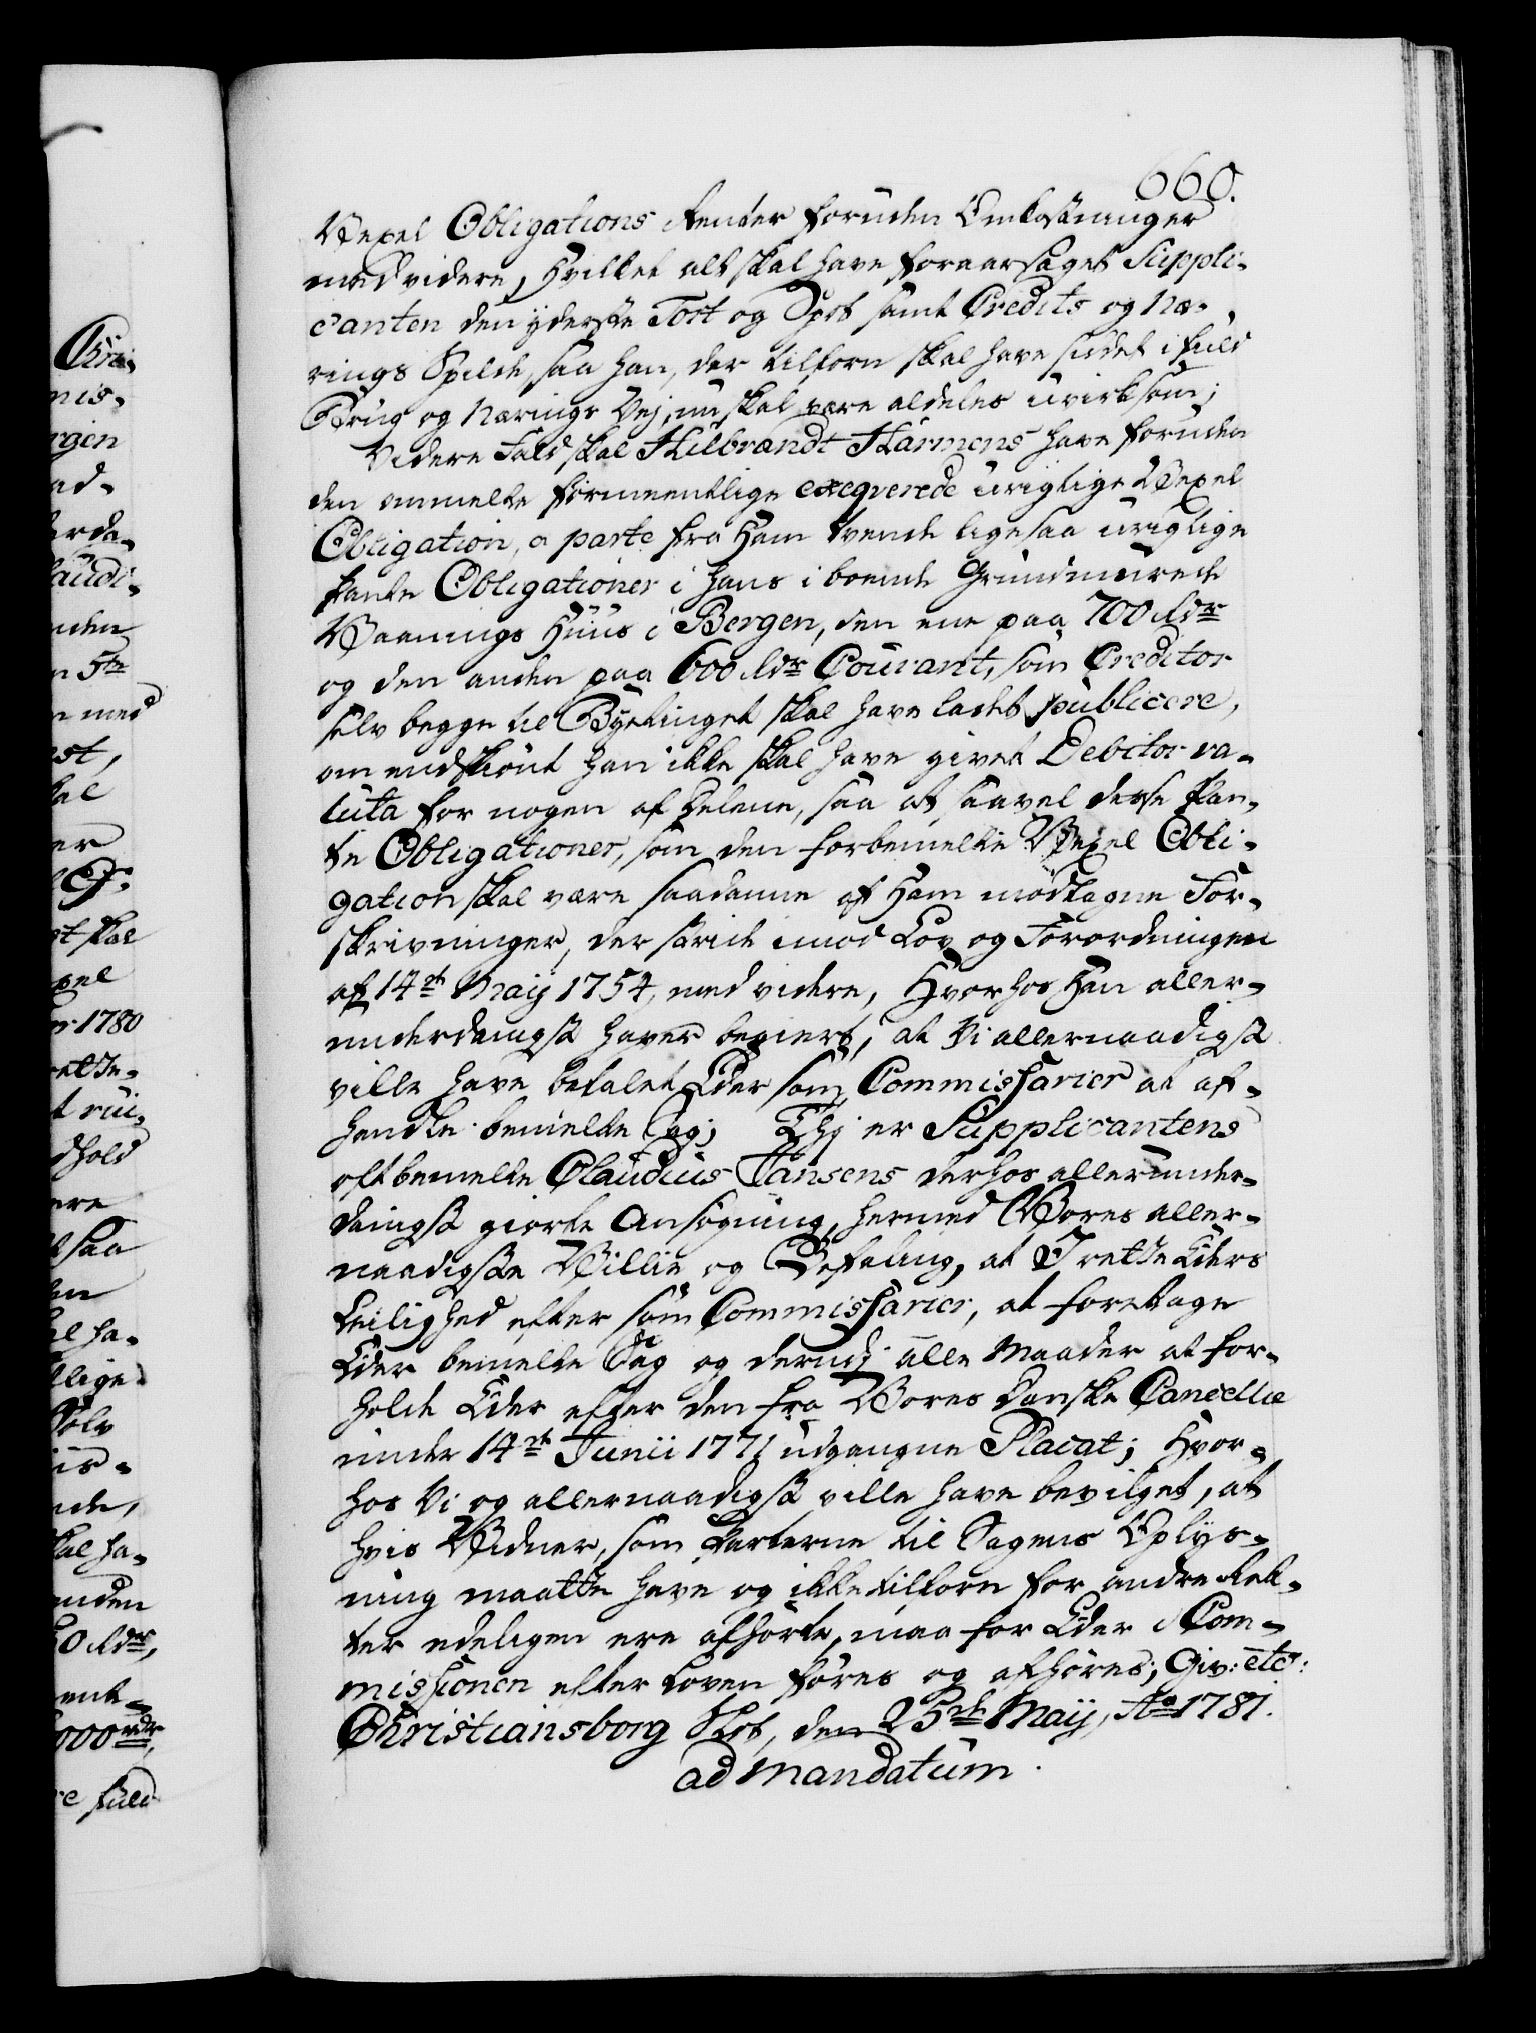 660.
Vexel Obligations Renter foruden Omkostninger
med videre, Hvilket alt skal have foraarsaget Suppli-
canten den yderste Tort og Spot samt Credits og Næ-
rings Spilde, saa han, der tilforn skal have siddet i fuld
Brug og Nærings Vej, nu skal være aldeles uvirksom;
Videre Fald skal Hilbrandt Harmens have foruden
den anmelte formeentlige exeqverede urigtige Vexel
Obligation, a parte fra Ham tvende ligesaa urigtige
Pante Obligationer i hans iboende Grundmurede
Vaanings Huus i Bergen, den ene paa 700 Rdr
og den anden paa 600 Rdr Courant, som Creditor
selv begge til Byetinget skal have ladet publicere,
om endskiønt han ikke skal have givet Debitor va-
luta for nogen af Delene, saa at saavel disse Pan-
te Obligationer, som den forbemelte Vexel Obli-
gation skal være saadanne af Ham modtagne For-
skrivninger, der stride imod Lov og Forordningen
af 14de Maij 1754, med videre, Hvorhos Han aller-
underdanigst haver begiert, at Vi allernaadigst
ville have befalet Eder som Commissarier at af-
handle bemelte Sag; Thi er Supplicantens
oftbemelte Claudius Jansens derhos allerunder-
danigst giorte Ansøgning, hermed Vores aller-
naadigste Villie og Befaling, at I rette Eders
Leilighed efter som Commissarier, at foretage
Eder bemelte Sag og derudj alle Maader at for-
holde Eder efter den fra Vores Danske Cancellie
under 14de Junii 1771 udgangne Placat; Hvor-
hos Vi og allernaadigst ville have bevilget, at
hvis Vidner, som Parterne til Sagens Oplys-
ning maatte have og ikke tilforn for andre Ret-
ter edeligen ere afhørte, maa for Eder i Com-
missionen efter Loven føres og afhøres; Giv: etc:
Christiansborg Slot, den 25de Maij, Ao 1781.
ad mandatum.